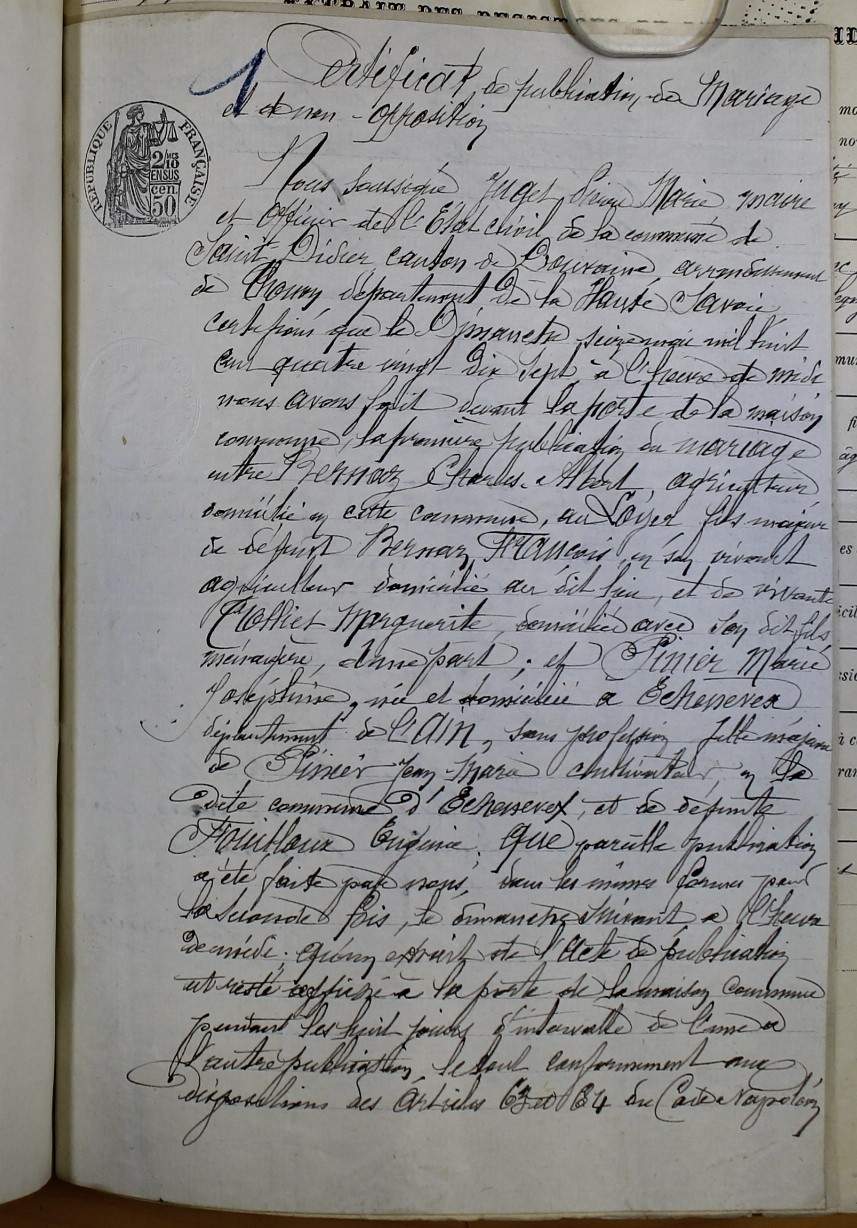 Certificat de publication de Mariage
et de non-opposition
RÉPUBLIQUE FRANÇAISE
2/10
EN SUS
50 cen.
Nous soussigné Juget Marie maire
et officier de l'Etat civil de la commune de
Saint Didier canton de Douvaine, arrondissement
de Thonon département de la Haute Savoie
certifions que le Dimanche seize mai mil huit
cent quatre vingt Dix Sept à l'heure de midi
nous avons fait devant la porte de la maison
commune, la première publication du mariage
entre Bernaz Charles Albert, agriculteur
domicilié en cette commune, au fils majeur
de défunt Bernaz François, en son vivant
agriculteur domicilié au dit lieu, et de vivante
Marguerite, domiciliée avec son dit fils
ménagère, d'une part; et Pinier Marie
Joséphine, née et domiciliée à Echenevex
département de l'Ain, sans profession fille majeure
de Pinier Jean Marie cultivateur en la
dite commune d'Echenevex, et de défunte
Fouilloux Eugénie; que pareille publication
a été faite par nous, dans les mêmes formes pour
la seconde fois, le dimanche suivant à l'heure
de midi; qu'un extrait de l'acte de publication
est resté affiché à la porte de la maison commune
pendant les huit jours d'intervalle de l'une à
l'autre publication, le tout conformément aux
dispositions des Articles 63 et 64 du Code Napoléon